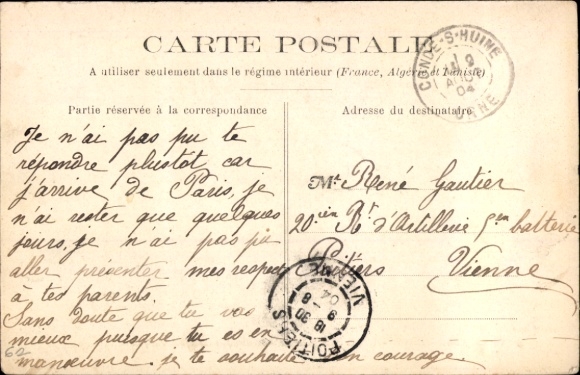 CARTE POSTALE
A utiliser seulement dans le régime intérieur (France, Algérie et Tunisie)
CONDÉ-S-HUINE
9
AOUT
04
ORNE
Partie réservée à la correspondance
Adresse du destinataire
Je n'ai pas pu te
répondre plustot car
j'arrive de Paris, je
n'ai rester que quelques
jours, je n'ai pas pu
aller présenter mes respect
à tes parents.
Sans doute que tu vas
mieux puisque tu es en
manœuvre. je te souhaite bon courage.
Mr. René Gautier
20.ième Rt d'Artillerie 5em batterie
Poitiers
Vienne
POITIERS
VIENNE
8-30
04
62